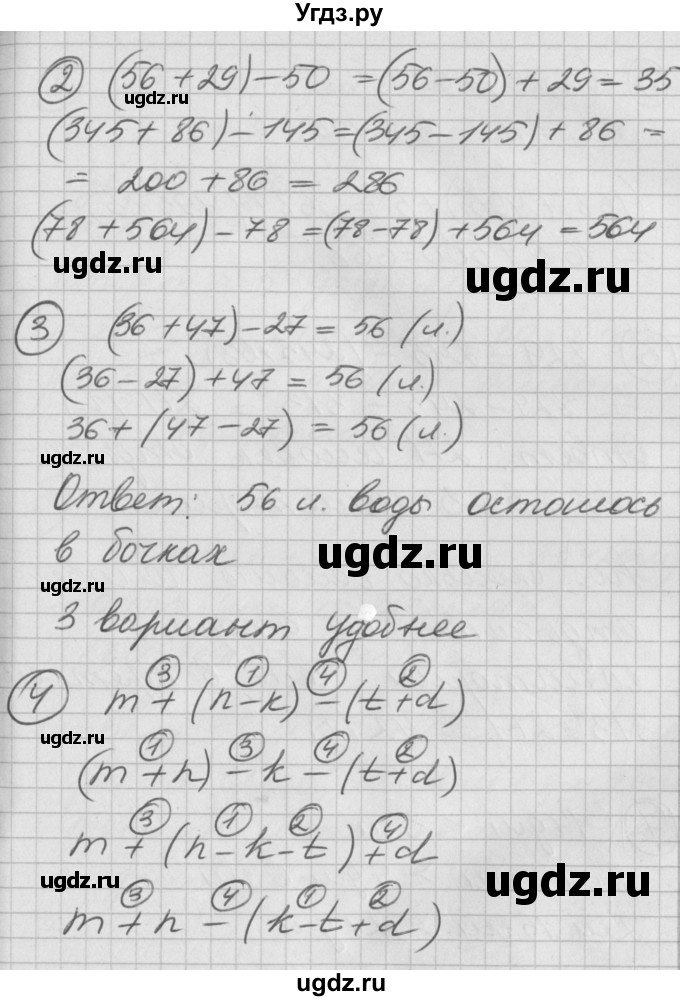 Угдз.ру
② (56 + 29) − 50 = (56 − 50) + 29 = 35
ugdz.ru
(345 + 86) − 145 = (345 − 145) + 86 =
= 200 + 86 = 286
(78 + 564) − 78 = (78 − 78) + 564 = 564
ugdz.ru ugdz.ru
③ (36 + 47) − 27 = 56 (л.)
(36 − 27) + 47 = 56 (л.)
36 + (47 − 27) = 56 (л.)
ugdz.ru
Ответ: 56 л. воды осталось
ugdz.ru
в бочках
ugdz.ru
3 вариант удобнее
③ ① ④ ②
④ m + (n − k) − (t + d)
ugdz.ru
① ③ ④ ②
(m + n) − k − (t + d)
③ ① ② ④
m + (n − k − t) + d
ugdz.ru ugdz.ru
③ ④ ① ②
m + n − (k − t + d)
ugdz.ru